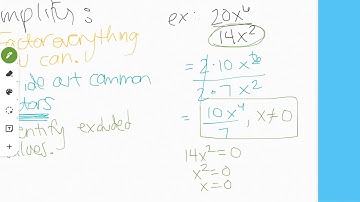 mplify:
Factor everything
ou can.
ide out common
tors
entify excluded
values.
ex: 20x⁶
14x²
= 2·10x⁶
2·7x²
= 10x⁴
7 , x≠0
14x²=0
x²=0
x=0